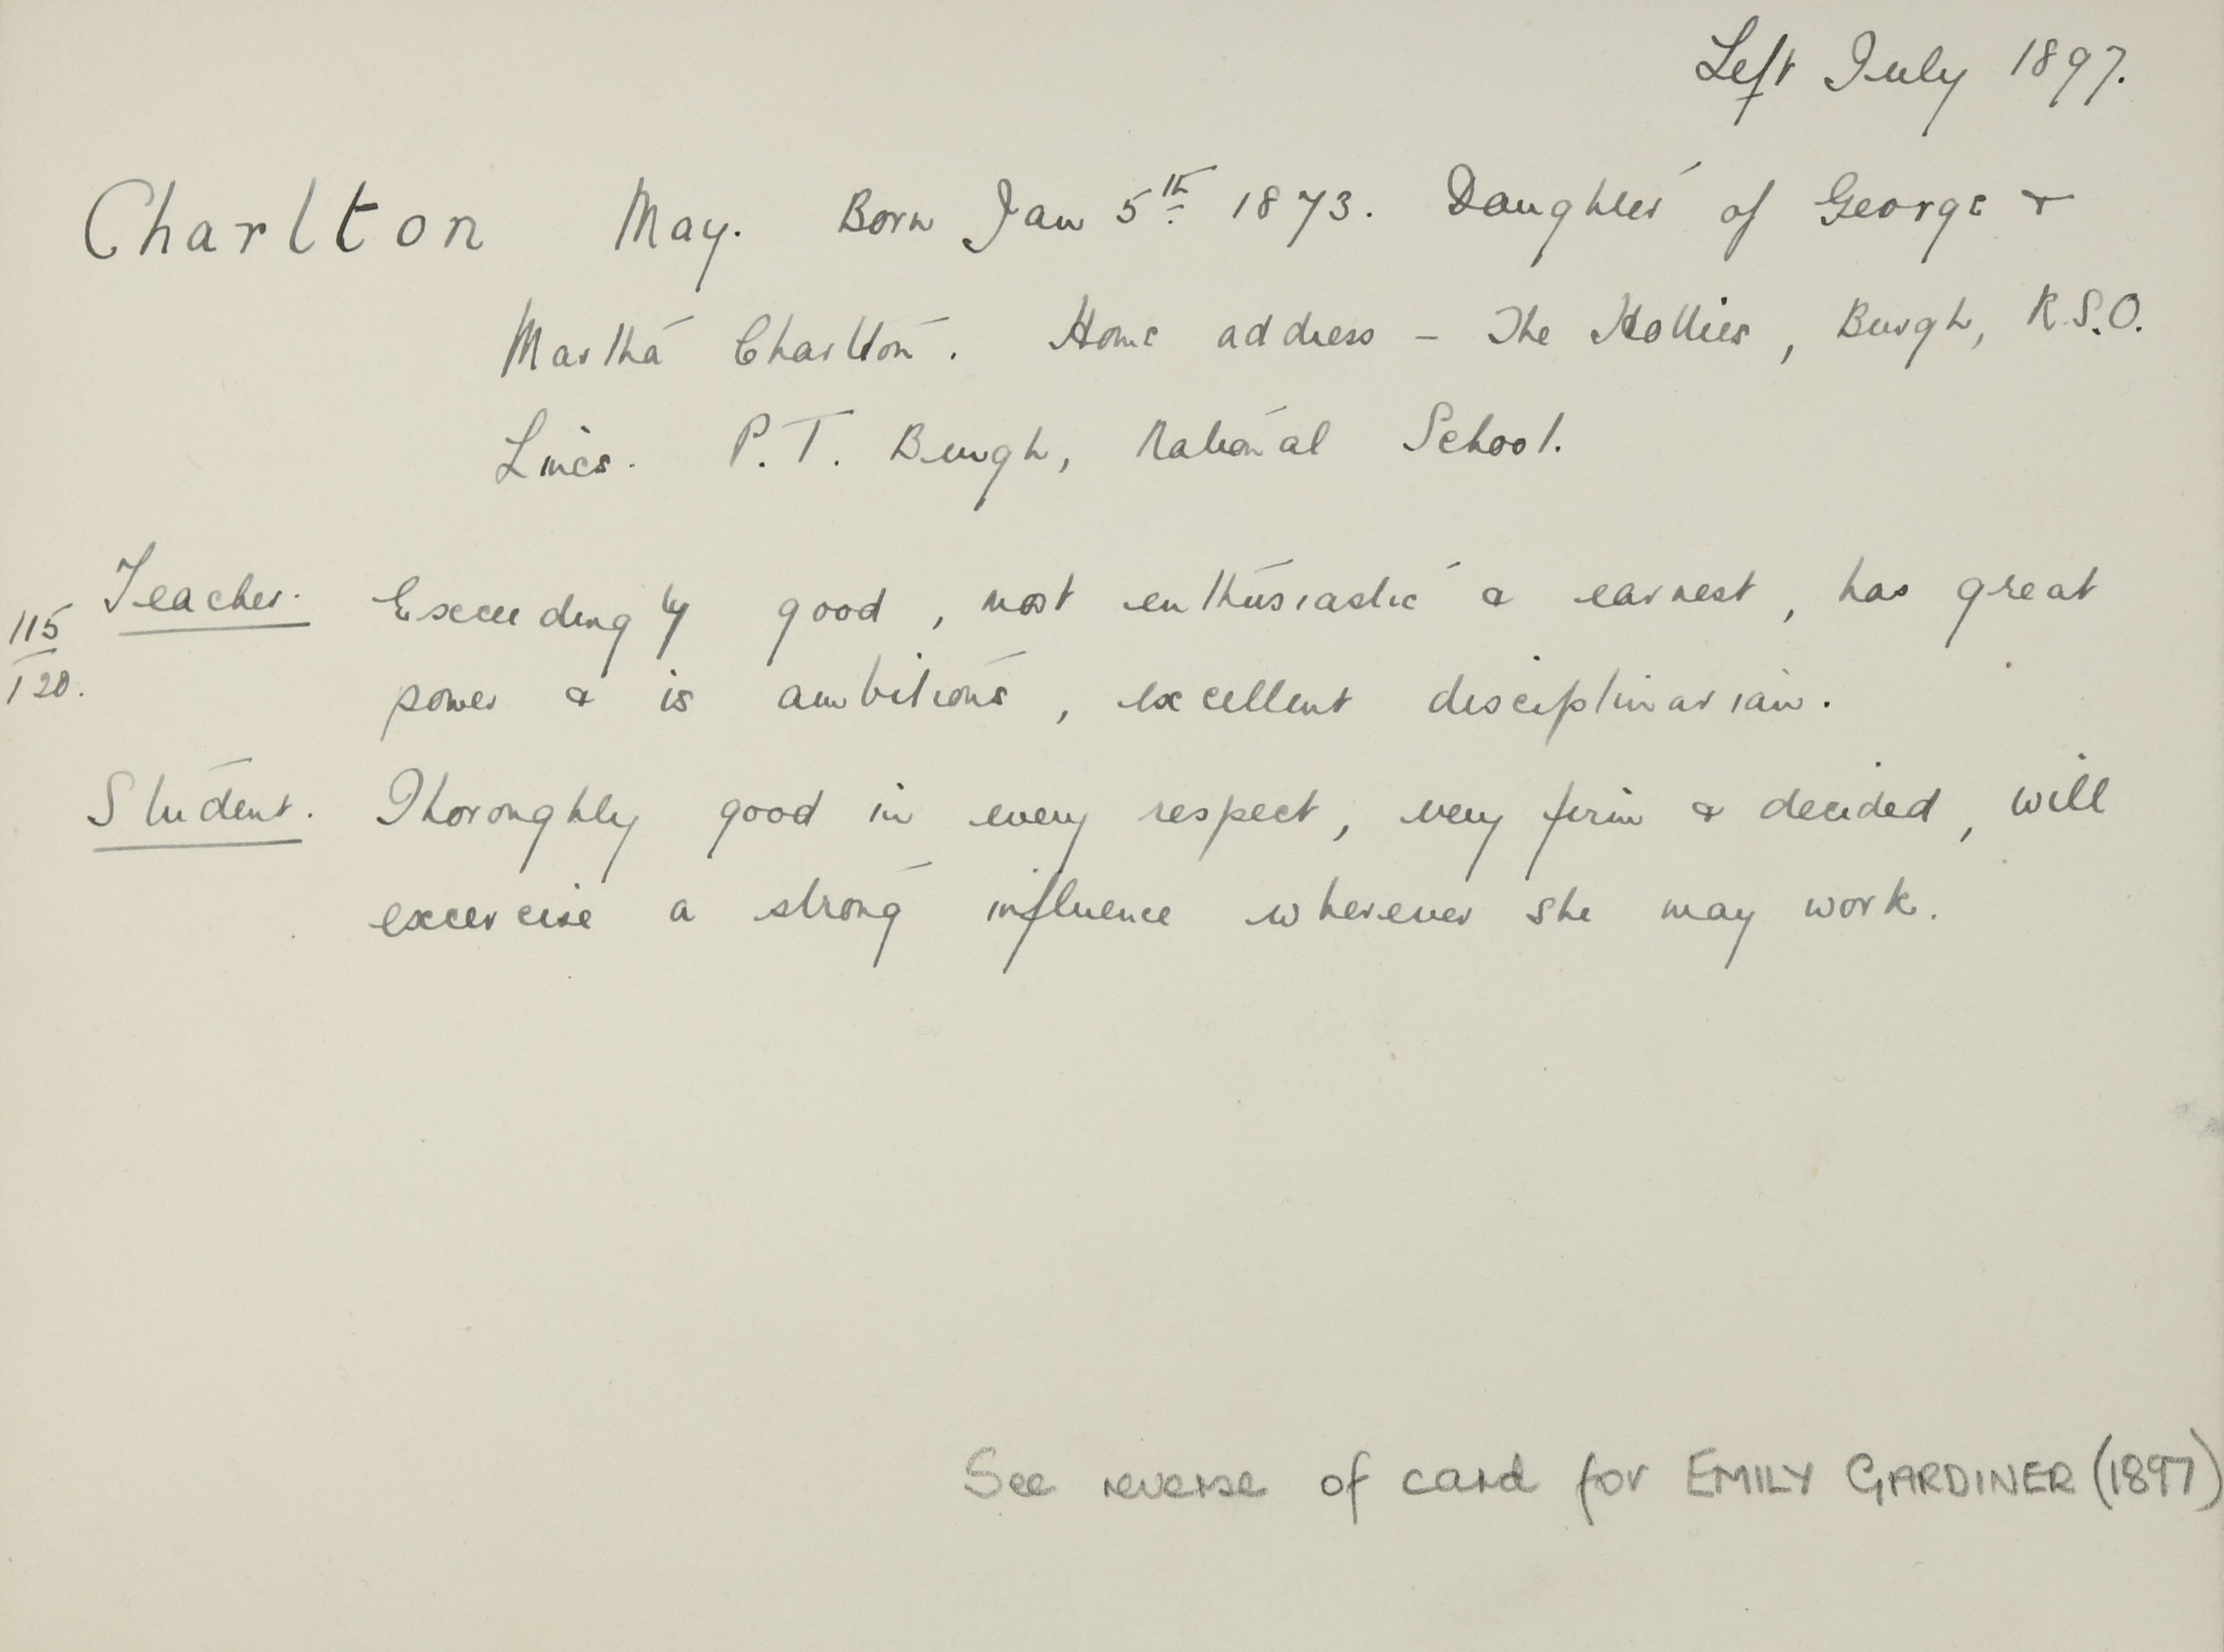 Left July 1897.
Charlton May. Born Jan 5th 1873. Daughter of George &
Martha Charlton. Home address - The Hollies, Burgh, R.S.O.
Lincs. P.T. Burgh, National School.
Teacher. Exceedingly good, most enthusiastic & earnest, has great
115
120.
power & is ambitious, excellent disciplinarian.
Student. Thoroughly good in every respect, very firm & decided, will
excercise a strong influence wherever she may work.
See reverse of card for EMILY GARDINER (1897)